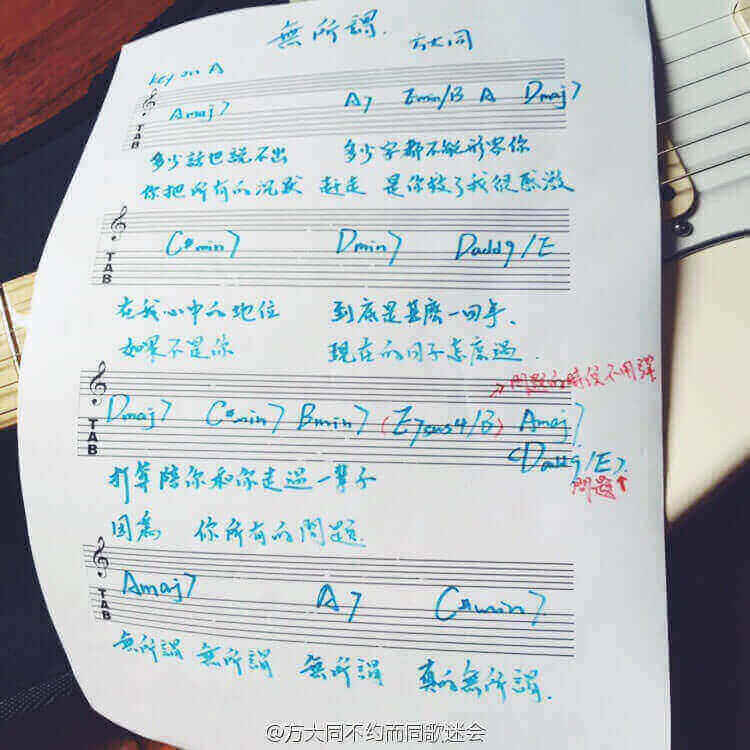 無所謂. 方大同
key on A
Amaj7 A7 Emin/B A Dmaj7
多少話也說不出 多少字都不能形容你
你把所有的沉默 趕走 是你救了我很感激
TAB
C#min7 Dmin7 Dadd9/E
在我心中的地位 到底是甚麼一回事.
如果不是你 現在的日子怎麼過.
→問題的時候不用彈
TAB
Dmaj7 C#min7 Bmin7 (E7sus4/B) Amaj7
(Dadd9/E).
問題↑
打算陪你和你走過一輩子
因為 你所有的問題.
TAB
Amaj7 A7 C#min7
無所謂 無所謂 無所謂 真的無所謂.
TAB
@方大同不约而同歌迷会